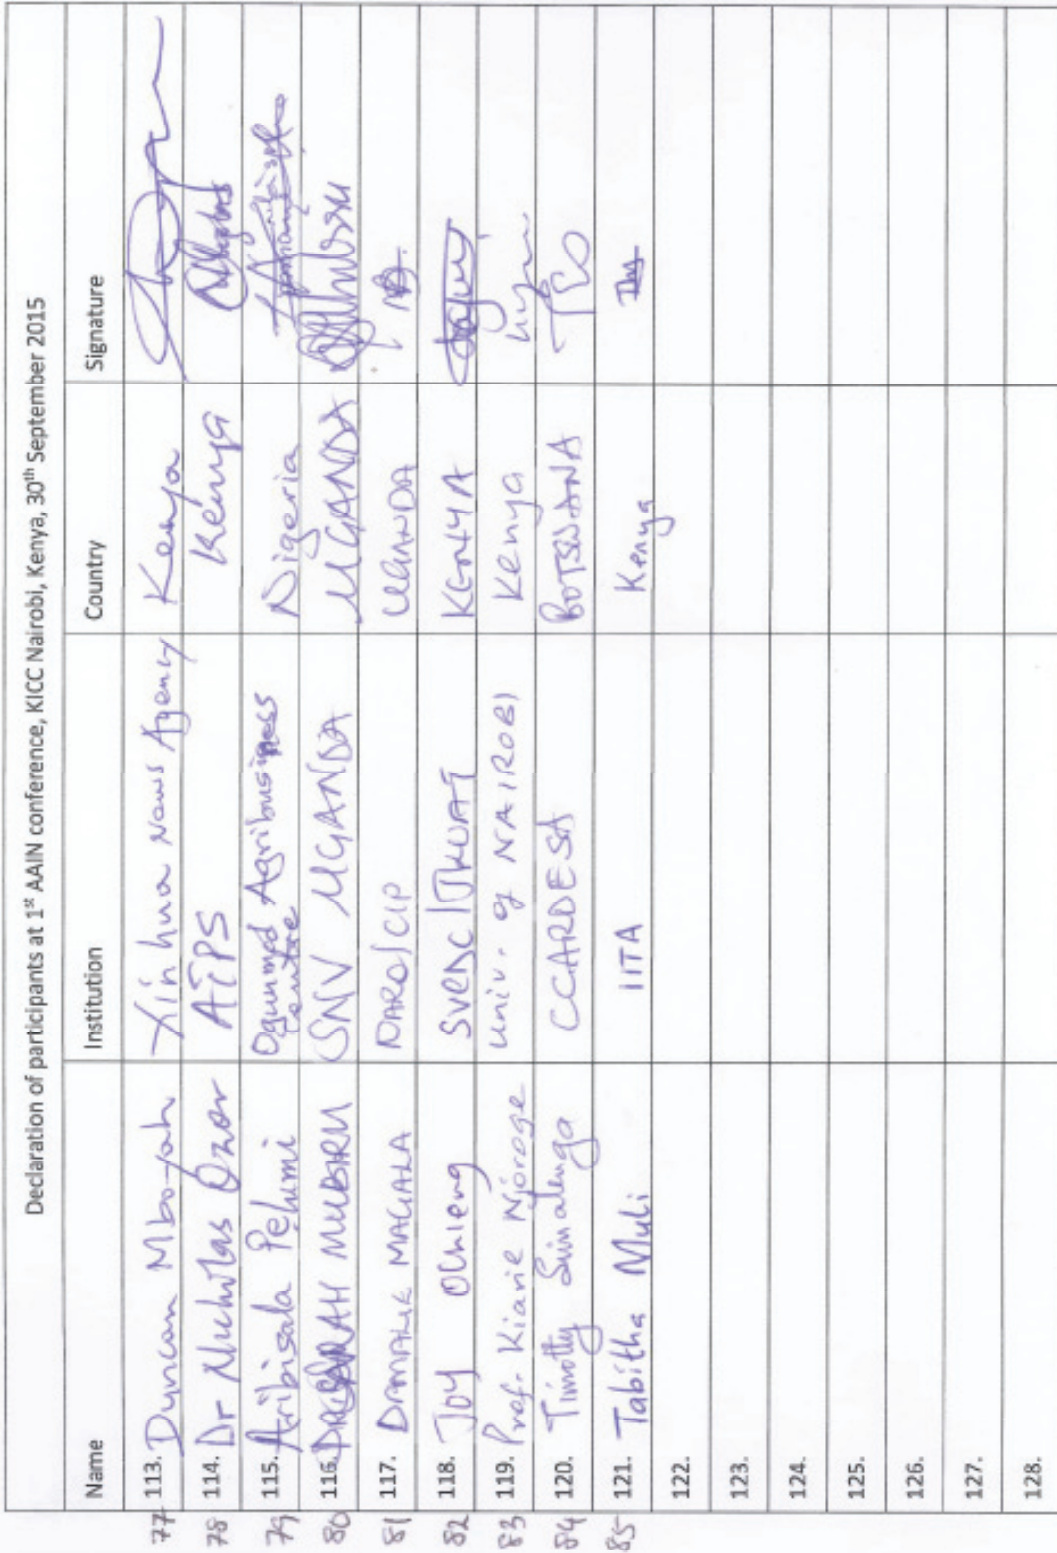 Declaration of participants at 1st AAIN conference, KICC Nairobi, Kenya, 30th September 2015
Name Institution Country Signature
77 113. Duncan Mboyah Xinhua News Agency Kenya
78 114. Dr Nicholas Ozor ATPS Kenya
79 115. Aribisala Pelumi Ogunmod Agribusiness Centre Nigeria
80 116. SARAH MUBIRU SNV UGANDA UGANDA
81 117. DR MALIK MAGALA NARO/CIP UGANDA
82 118. JOY Ochieng SVEDC/JKUAT KENYA
83 119. Prof. Kiarie Njoroge Univ. of NAIROBI Kenya
84 120. Timothy Simalenga CCARDESA BOTSWANA
85 121. Tabitha Muli IITA Kenya
122.
123.
124.
125.
126.
127.
128.